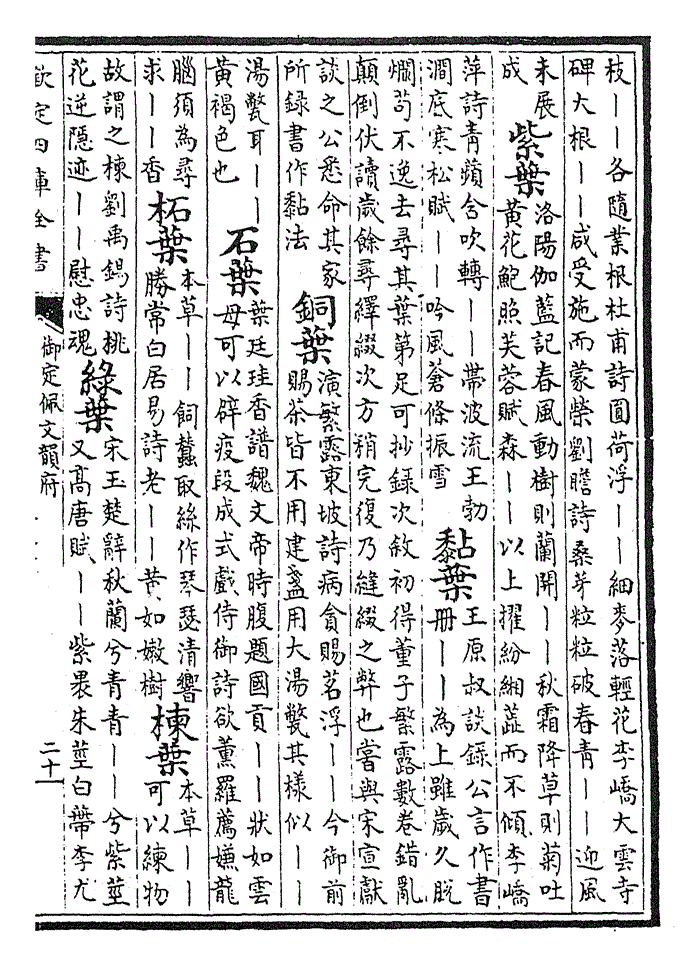 枝——各隨業根杜甫詩圓荷浮——細麥落輕花李嶠大雲寺
碑大根——咸受施而蒙榮劉瞻詩桑芽粒粒破春青——迎風
未展
成
紫葉
洛陽伽藍記春風動樹則蘭開——秋霜降草則菊吐
黄花鮑照芙蓉賦森——以上擢紛緗蕋而不傾李嶠
萍詩青蘋含吹轉——帶波流王勃
澗底寒松賦——吟風蒼條振雪
黏葉
王原叔談錄公言作書
冊——為上雖歲久脱
爛苟不逸去尋其葉第足可抄錄次敘初得董子繁露數卷錯亂
顛倒伏讀歲餘尋繹綴次方稍完復乃縫綴之弊也嘗與宋宣獻
談之公悉命其家
所錄書作黏法
銅葉
演繁露東坡詩病貪賜茗浮——今御前
賜茶皆不用建盞用大湯氅其樣似——
湯氅耳——
黄褐色也
石葉
葉廷珪香譜魏文帝時腹題國貢——狀如雲
母可以辟疫段成式戲侍御詩欲薰羅薦嫌龍
腦須為尋
求——香
柘葉
本草——飼蠶取絲作琴瑟清響
勝常白居易詩老——黄如嫩樹
楝葉
本草——
可以練物
故謂之楝劉禹錫詩桃
花逆隱迹——慰忠魂
綠葉
宋玉楚辭秋蘭兮青青——兮紫莖
又高唐賦——紫裹朱莖白蔕李尤
欽定四庫全書
御定佩文韻府
二十一